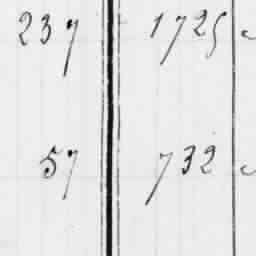 237 1725
57 732